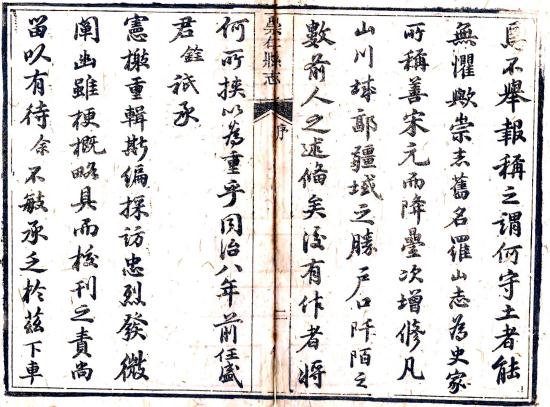 焉不舉報稱之謂何守土者能
無懼歟崇志舊名羅山志為史家
所稱善宋元而降疊次增修凡
山川城鄙疆域之勝戶口阡陌之
數前人之述備矣後有作者將
崇仁縣志
序
二
何所挾以為重乎同治八年前任盛
君銓祇承
憲檄重輯斯編採訪忠烈發微
闡幽雖梗概略具而校刊之責尚
留以有待余不敏承乏於茲下車